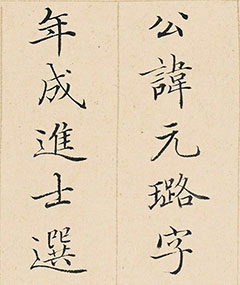 公諱元璐字
年成進士選